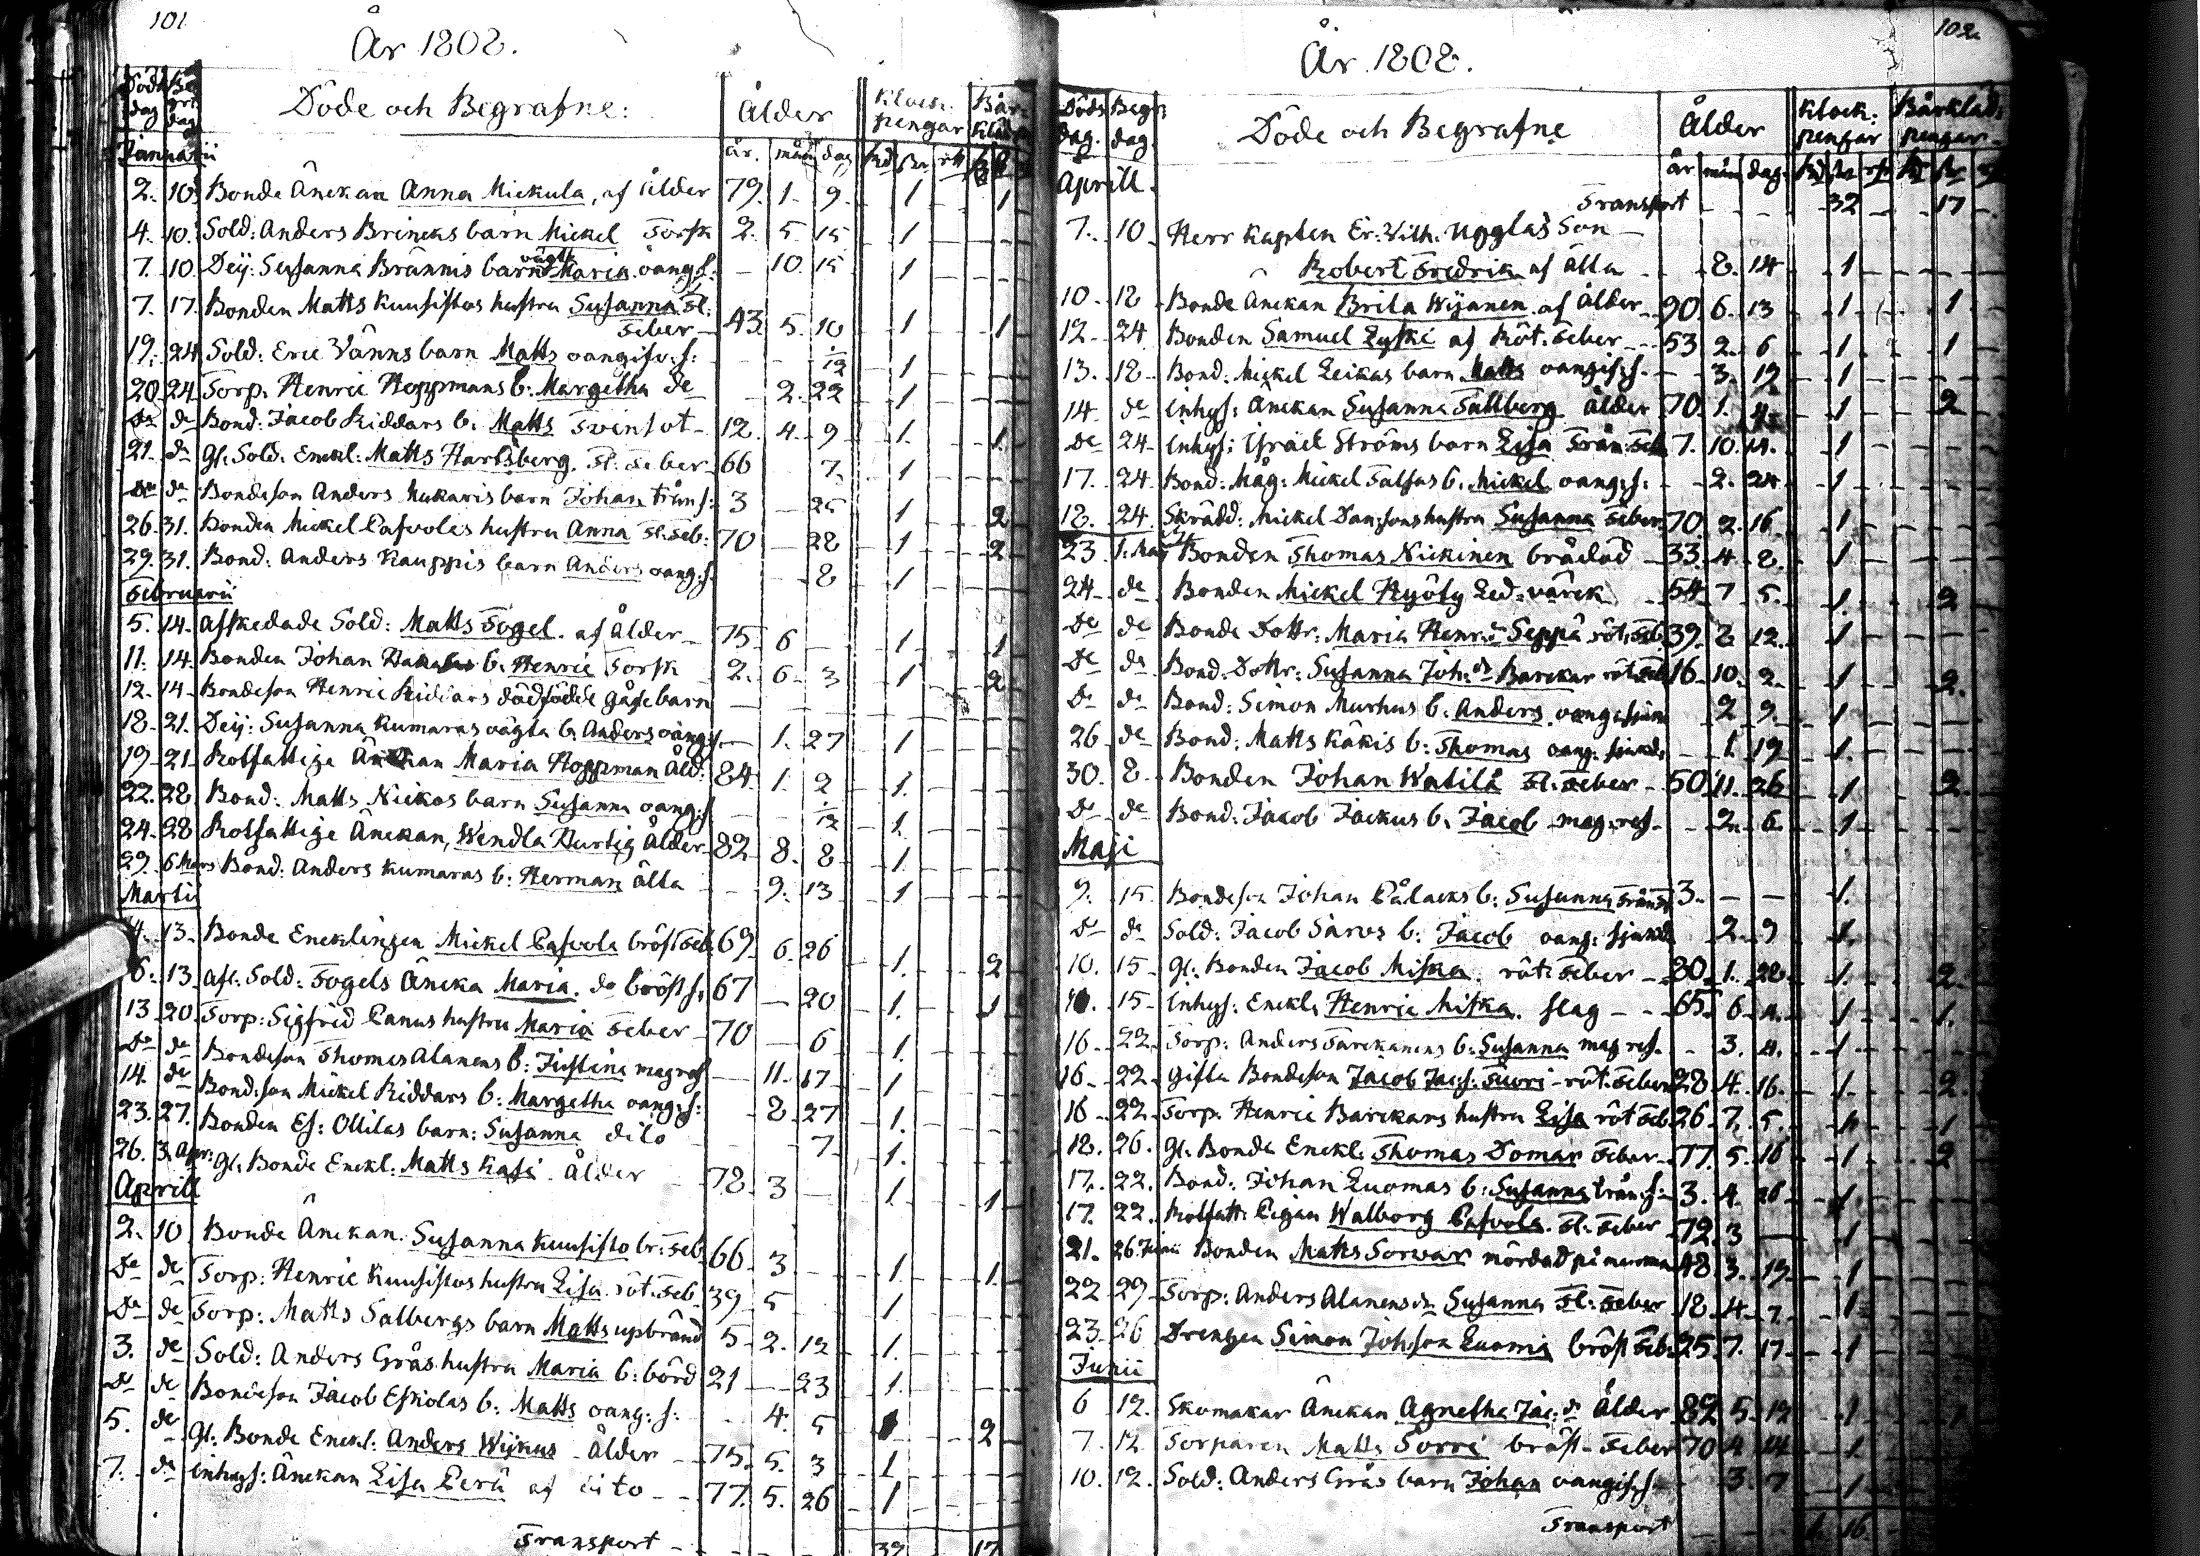 101
År 1808.
Döds dag
Begr. dag
Döde och Begrafne:
Ålder
Klock. pengar
Bår Kläd
år. mån dag
Januarii
2. 10. Bonde Änckan Anna Mickula, af Ålder 79. 1. 9. 1 1
4. 10. Sold: Anders Brincks barn Mickel Torsk 2. 5. 15 1
7. 10 Dej: Susanna Brännis barn Maria oäng:s. 10. 15 1
oägta
7. 17. Bonden Matts Kuusistos hustru Susanna Fl.
Feber 43. 5. 10 1 1
19. 24 Sold: Eric Vänns barn Matts oangifv: s: 1/12 1
20 24 Torp. Henric Hoppmans b: Margetha do 2. 22 1
do do Bond: Jacob Riddars b. Matts Tvinsot 12. 4. 9 1. 1.
21. do Gl. Sold. Enckl: Matts Harlsberg. Fl. Feber 66 7. 1
do do Bondeson Anders Kukaris barn Johan trån s: 3 25 1 2
26. 31. Bonden Mickel Pasvolis hustru Anna Fl. Feb: 70 28 1 2
29. 31. Bond: Anders Kauppis barn Anders oäng:s. 8 1
Februarii
5. 14. Afskedade Sold: Matts Fogel. af Ålder 75 6 1 1
11. 14. Bonden Johan b. Henric Torsk 2. 6. 3 1 2
12. 14 Bondeson Henric Riddars dödfödde gåsse barn
18. 21. Dej: Susanna Kumaras oägta b: Anders oäng:s. 1. 27 1
19 21. Rotfattige Änckan Maria Hoppman Åld: 84 1. 2 1.
22. 28 Bond: Matts Nickos barn Susanna oang:s 1/12 1.
24. 28 Rotfattige Änckan, Wendla Hurtig Ålder 82 8. 8 1.
29. 6 Mars Bond: Anders Kumaras b: Herman Älta 9. 13 1
Martii
4. 13. Bonde Encklingen Mickel Pasvola bröst Feb. 69. 6. 26 1. 2
6. 13. Afs. Sold: Fogels Äncka Maria. do bröst s: 67 20 1. 1
13 20 Torp: Sigfrid Panus hustru Maria Feber 70 6 1.
do do Bondeson Thomas Alanens b: Justina mag ref 11. 17 1
14. do Bond:son Mickel Riddars b: Margetha oang:s: 8. 27 1.
23. 27. Bonden Es: Ollilas barn: Susanna dito 7. 1.
26. 3. Apr: Gl. Bonde Enckl: Matts Kasi Ålder 78. 3 1. 1
Aprill
2. 10 Bonde Änckan. Susanna Kuusisto br: Feb. 66 3 1. 1.
do do Torp: Henric Kuusistos hustru Lisa. röt: Feb. 39 5 1
do do Torp: Matts Salbergs barn Matts upbränd 5 2. 12 1.
3. do Sold: Anders Grås hustru Maria b: börd 21 23 1.
do do Bondeson Jacob Eskolas b: Matts oang: s: 4. 5 1 2
5. do Gl: Bonde Enckl: Anders Wijkus Ålder 75. 5. 3 1
7. do Inhys: Änckan Lisa Perä af dito 77. 5. 26 1
Transport 32 17
102.
År 1808.
Döds dag.
Begr: dag.
Döde och Begrafne
Ålder
Klock: pengar
Bårkläds pengar
år mån dag.
Aprill.
Transport 32 17
7. 10 Herr Kapten Er: Vilh. Ugglas Son
Robert Fredrik af älta 8. 14 1
10. 18 Bonde Änckan Brita Wijanen af Ålder 90. 6. 13 1 1.
12. 24 Bonden Samuel Lyski af Röt: Feber 53 2. 6 1 1
13. 18 Bond: Mickel Leikas barn Matts oangif:s. 3. 19 1
14. do Inhys: Änckan Susanna Sallberg Ålder 70. 1. 1 2
do 24 Inhys: Israel Ströms barn Lisa Trån:sik 7. 10. 14. 1
17. 24 Bond: Måg: Mickel Salsus b. Mickel oang:s: 2. 24 1
18. 24. Skrädd: Mickel Dansons hustru Susanna Feber 70. 2. 16. 1
23 1. Maj Bonden Thomas Nickinen brådöd 33. 4. 8. 1
24 do Bonden Mickel Hyöty Led:värck 54. 7. 5. 1. 2
do do Bonde Dottr: Maria Henr:s Seppä röt: Feb. 39. 8. 12. 1
do do Bond: Dottr: Susanna Joh:dr Barckar röt: Feb. 16 10. 2 1 2.
do do Bond: Simon Murhus b: Anders oang:sjuk 2 9. 1
26 do Bond: Matts Käkis b: Thomas oang: sjukd. 1. 19 1.
30. 8. Bonden Johan Watilä Fl: Feber 50 11. 26 1 2
do do Bond: Jacob Jackus b. Jacob mag:ref. 2. 6. 1
Maji
9. 15. Bondeson Johan Pålacks b: Susanna 3. 1.
do do Sold: Jacob Sarvs b: Jacob oang: sjukd. 2. 9 1.
10. 15 Gl: Bonden Jacob Miska. röt: Feber 80 1. 28 1. 2
15 Inhys: Enckl: Henric Miska. slag 65. 6 4. 1 1.
16 22. Torp: Anders Tarckanens b: Susanna mag ref. 3. 4. 1
16 22. Gifta Bondeson Jacob Jac:s. Suori röt: Feber 28 4. 16. 1 2.
16 22. Torp. Henric Barckars hustru Lisa röt Feb. 26. 7. 5. 1. 1
18. 26. Gl: Bonde Enckl: Thomas Domar Feber 77. 5. 16 1 2
17. 22. Bond: Johan Luomas b: Susanna trån:s: 3. 4. 26 1
17. 22. Rotfatt: Pigan Walborg Pasvola. Fl: Feber 72. 3 1
21. 26 Junii Bonden Matts Sorvar mördad på 48. 3. 19. 1
22 29 Torp: Anders Alanens dr Susanna Fl: Feber 18 4. 7. 1
23 26 Drengen Simon Joh:son Luoma bröst Feb. 25. 7. 17 1
Junii
6 12. Skomakar Änckan Agnetha Jac:dr Ålder 82. 5. 12 1
7. 12 Torparen Matts Sorri bröst- Feber 70 4 14 1
10. 12. Sold: Anders Grås barn Johan oangif:s. 3. 7 1
Transport 1. 16